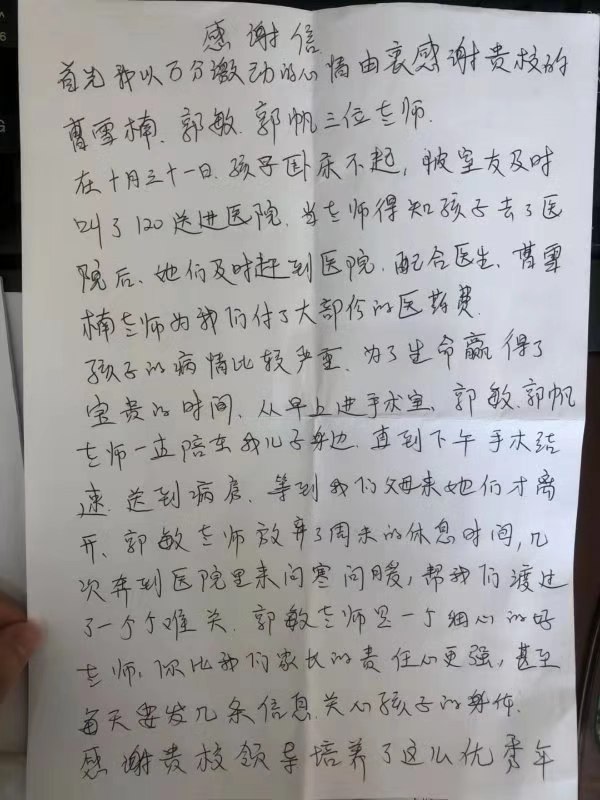 感谢信
首先我以万分激动的心情由衷感谢贵校的
曹雪楠、郭敏、郭帆三位老师.
在十月三十一日、孩子卧床不起，被室友及时
叫了120送进医院、当老师得知孩子去了医
院后、她们及时赶到医院、配合医生、曹雪
楠老师为我们付了大部份的医药费.
孩子的病情比较严重、为了生命赢得了
宝贵的时间、从早上进手术室、郭敏、郭帆
老师一直陪在我儿子身边、直到下午手术结
束、送到病房、等到我们父母来她们才离
开、郭敏老师放弃了周末的休息时间，几
次奔到医院里来问寒问暖，帮我们渡过
了一个个难关、郭敏老师是一个细心的好
老师，你比我们家长的责任心更强，甚至
每天要发几条信息、关心孩子的身体.
感谢贵校领导培养了这么优秀年